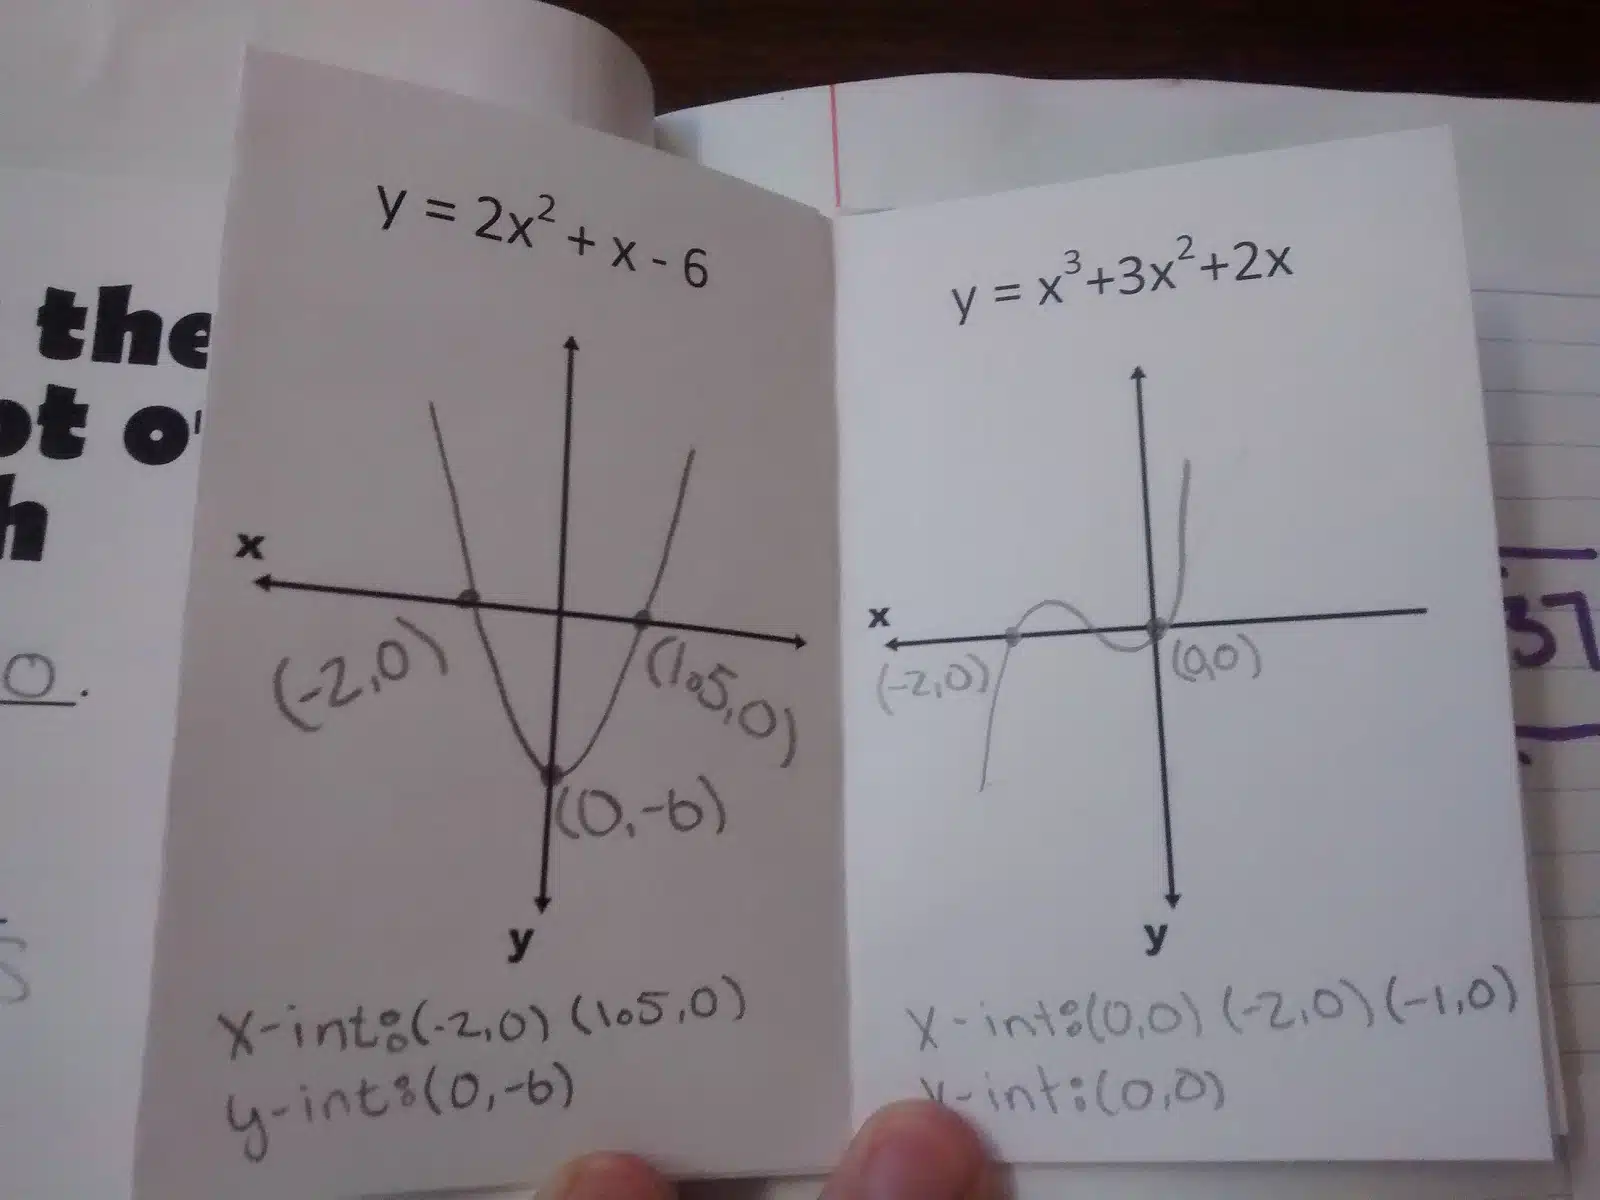 the
0.
y = 2x² + x - 6
x
(-2,0)
(1.5,0)
(0,-6)
y
x-int:(-2,0) (1.5,0)
y-int:(0,-6)
y = x³+3x²+2x
x
(-2,0)
(0,0)
y
x-int:(0,0) (-2,0) (-1,0)
y-int:(0,0)
37